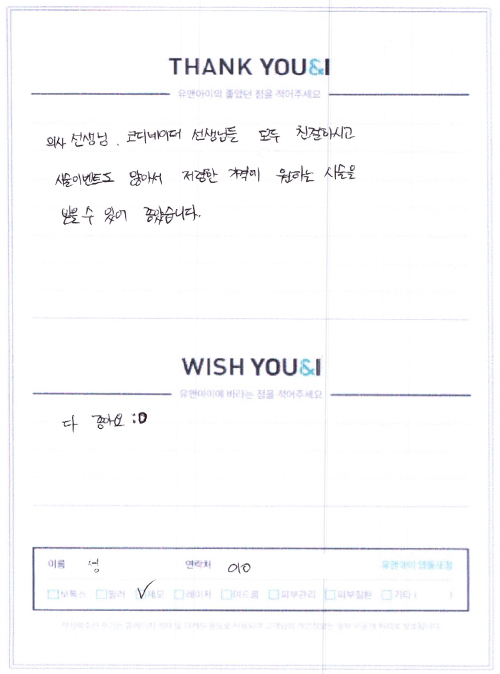 THANK YOU&I
유앤아이의 좋았던 점을 적어주세요
의사 선생님, 코디네이터 선생님들 모두 친절하시고
시술이벤트도 많아서 저렴한 가격에 원하는 시술을
받을 수 있어 좋았습니다.
WISH YOU&I
유앤아이에 바라는 점을 적어주세요
다 좋아요 :D
이름 연락처 010 유앤아이 영등포점
보톡스 필러 제모 레이저 여드름 피부관리 피부질환 기타 ( )